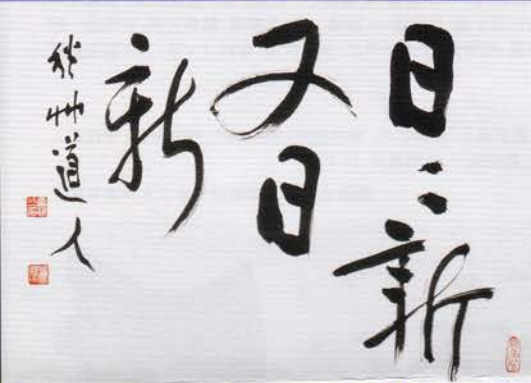 日〻新
又日
新
艸道人